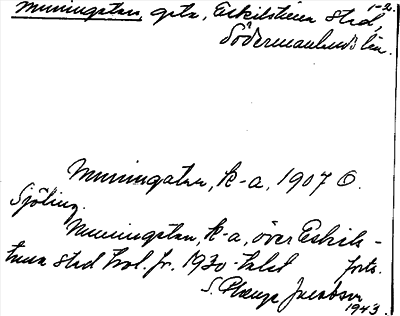 Muningatan, gata, Eskilstuna stad, 1-2.
Södermanlands län.
Muningatan, k-a, 1907 O.
Sjöling.
Muningatan, k-a, över Eskils-
tuna stad trol. fr. 1930-talet forts.
S. Plænge Jacobson
1943.